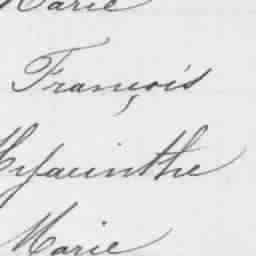 Marie
François
Hyacinthe
Marie